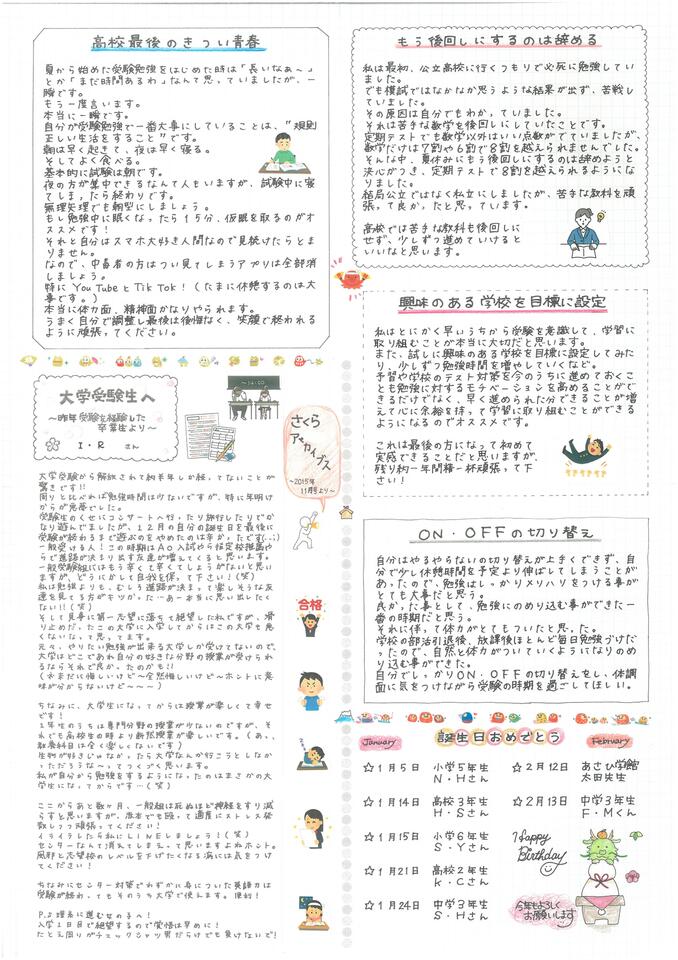 高校最後のきつい青春
夏から始めた受験勉強をはじめた時は「長いなぁ〜」
とか「まだ時間あるわ」なんて思っていましたが、一
瞬です。
もう一度言います。
本当に一瞬です。
自分が受験勉強で一番大事にしていることは、"規則
正しい生活をすること"です。
朝は早く起きて、夜は早く寝る。
そしてよく食べる。
基本的に試験は朝です。
夜の方が集中できるなんて人もいますが、試験中に寝
てしまったら終わりです。
無理矢理でも朝型にしましょう。
もし勉強中に眠くなったら15分、仮眠を取るのがオ
ススメです!
それと自分はスマホ大好き人間なので見続けたらとま
りません。
なので、中毒者の方はつい見てしまうアプリは全部消
しましょう。
特にYouTubeとTikTok!(たまに休憩するのは大
事です。)
本当に体力面、精神面かなりやられます。
うまく自分で調整し最後は後悔なく、笑顔で終われる
ように頑張ってください。
大学受験生へ
〜昨年受験を経験した
卒業生より〜
I・R さん
さくら
アーカイブス
〜2015年
11月号より〜
大学受験から解放されて約半年しか経ってないことが
驚きです!!
周りと比べれば勉強時間は少ないですが、特に年明け
からが危夢でした。
受験生のくせにコンサートへ行ったり旅行したりでか
なり遊んでましたが、12月の自分の誕生日を最後に
受験が終わるまで遊ぶのをやめたのは辛かったです(;;)
一般受ける人!この時期はAO入試やら指定校推薦や
らで進路が決まり出す友達が増えてくると思います。
一般受験組にはもう辛くて辛くてしょうがないと思い
ますが、どうにかして自我を保って下さい!(笑)
私は勉強よりも、むしろ進路が決まって楽しそうな友
達を見てる方がキツかった…あー本当に思い出したく
ない!!(笑)
そして見事に第一志望に落ちて絶望した私ですが、滑
り止めだったこの大学に入学してからはこの大学も悪
くないなって思ってます。
元々、やりたい勉強が出来る大学しか受けてないので、
大学はどこであれ自分の好きな分野の授業が受けられ
るならそれで良かったのかも!!
(ネまだに悔しいけど〜全然悔しいけど〜ホントに意
味が分からないけど〜〜〜)
ちなみに、大学生になってからは授業が楽しくて幸せ
です!
1年生のうちは専門分野の授業が少ないのですが、そ
れでも高校生の時より断然授業が楽しいです。(あっ、
教養科目は全く楽しくないです)
生物が好きじゃなかったら大学なんか行こうとしなか
っただろうな〜ってつくづく思います。
私が自分から勉強をするようになったのはまさかの大
学生になってからです…(笑)
ここからあと数ヶ月、一般組は死ぬほど神経をすり減
らすと思いますが、度本でも殴って適度にストレス発
散しつつ頑張ってください!
イライラしたら私にLINEしましょう!(笑)
センターなんて消えてしまえって思いますよねホント。
風邪と志望校のレベルを下げたくなる病には気をつけ
てください!
ちなみにセンター対策でわずかに身についた英語力は
受験が終わってもそのうち大学で使えます。便利!
P.S 理系に進む女の子へ!
入学1日目で絶望するので覚悟は早めに!
たとえ周りがチェックシャツ男だらけでも負けないで!
合格
もう後回しにするのは辞める
私は最初、公立高校に行くつもりで必死に勉強してい
ました。
でも模試ではなかなか思うような結果が出ず、苦戦し
ていました。
その原因は自分でもわかっていました。
それは苦手な数学を後回しにしていたことです。
定期テストでも数学以外はいい点数がでていましたが、
数学だけは7割や6割で8割を越えられませんでした。
そんな中、夏休みにもう後回しにするのは辞めようと
決心がつき、定期テストで8割を越えられるようにな
りました。
結局公立ではなく私立にしましたが、苦手な教科を頑
張って良かったと思っています。
高校では苦手な教科も後回しに
せず、少しずつ進めていけると
いいなと思います。
興味のある学校を目標に設定
私はとにかく早いうちから受験を意識して、学習に
取り組むことが本当に大切だと思います。
また、試しに興味のある学校を目標に設定してみた
り、少しずつ勉強時間を増やしていくなど。
予習や学校のテスト対策を今のうちに進めておくこ
とも勉強に対するモチベーションを高めることがで
きるだけでなく、早く進められた分できることが増
えて心に余裕を持って学習に取り組むことができる
ようになるのでオススメです。
これは最後の方になって初めて
実感できることだと思いますが、
残り約一年間精一杯頑張って下
さい!
ON・OFFの切り替え
自分はやるやらないの切り替えが上手くできず、自
分で少し休憩時間を予定より伸ばしてしまうことが
あったので、勉強はしっかりメリハリをつける事が
とても大事だと思う。
良かった事として、勉強にのめり込む事ができた一
番の時期だと思う。
それに伴って体力がとてもついたと思った。
学校の部活引退後、放課後ほとんど毎日勉強づけだ
ったので、自然と体力がついていくようになりのめ
り込む事ができた。
自分でしっかりON・OFFの切り替えをし、体調
面に気をつけながら受験の時期を過ごしてほしい。
January
誕生日おめでとう
February
☆1月5日 小学5年生
N・Hさん
☆1月14日 高校3年生
H・Sさん
☆1月15日 小学6年生
S・Yさん
☆1月21日 高校2年生
K・Cさん
☆1月24日 中学3年生
S・Hさん
☆2月12日 あさひ学館
太田先生
☆2月13日 中学3年生
F・Mくん
Happy
Birthday
今年もよろしく
お願いします